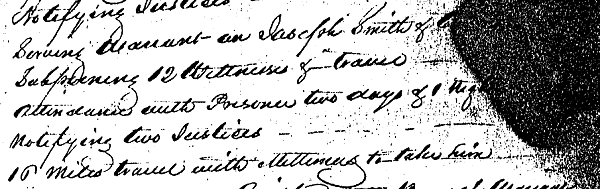 Notifying Justices
Serving Warrant on Joseph Smith &
Subpoening 12 Witnesses & travel
Attendance with Prisoner two days & 1 Nigh
Notifying two Justices - - - -
10 miles travel with Mittimus to take him